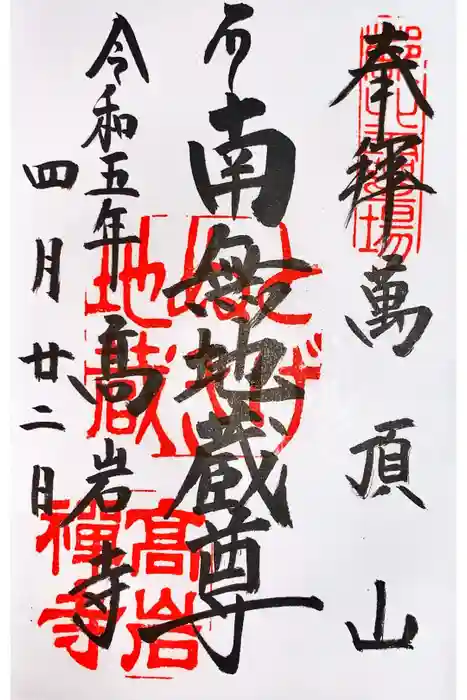 奉拜 萬頂山
南無地蔵尊
令和五年 高岩寺
四月廿二日
とげぬき地蔵
高岩禪寺